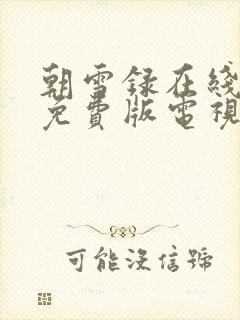 朝雪録在綫
免費版電視
可能沒信號